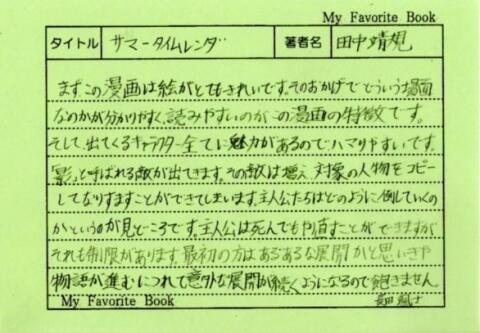 My Favorite Book
タイトル サマータイムレンダ 著者名 田中靖規
まず、この漫画は絵がとてもきれいです。そのおかげでどういう場面
なのかが分かりやすく、読みやすいのがこの漫画の特徴です。
そして、出てくるキャラクター全てに魅力があるので、ハマりやすいです。
「影」と呼ばれる敵が出てきます。その敵は増え、対象の人物をコピー
してなりすますことができてしまいます。主人公たちはどのように倒していくの
かというのが見どころです。主人公は死んでもやり直すことができますが
それも制限があります。最初の方はあるあるな展開かと思いきや
物語が進むにつれて意外な展開が続くようになるので飽きません
My Favorite Book